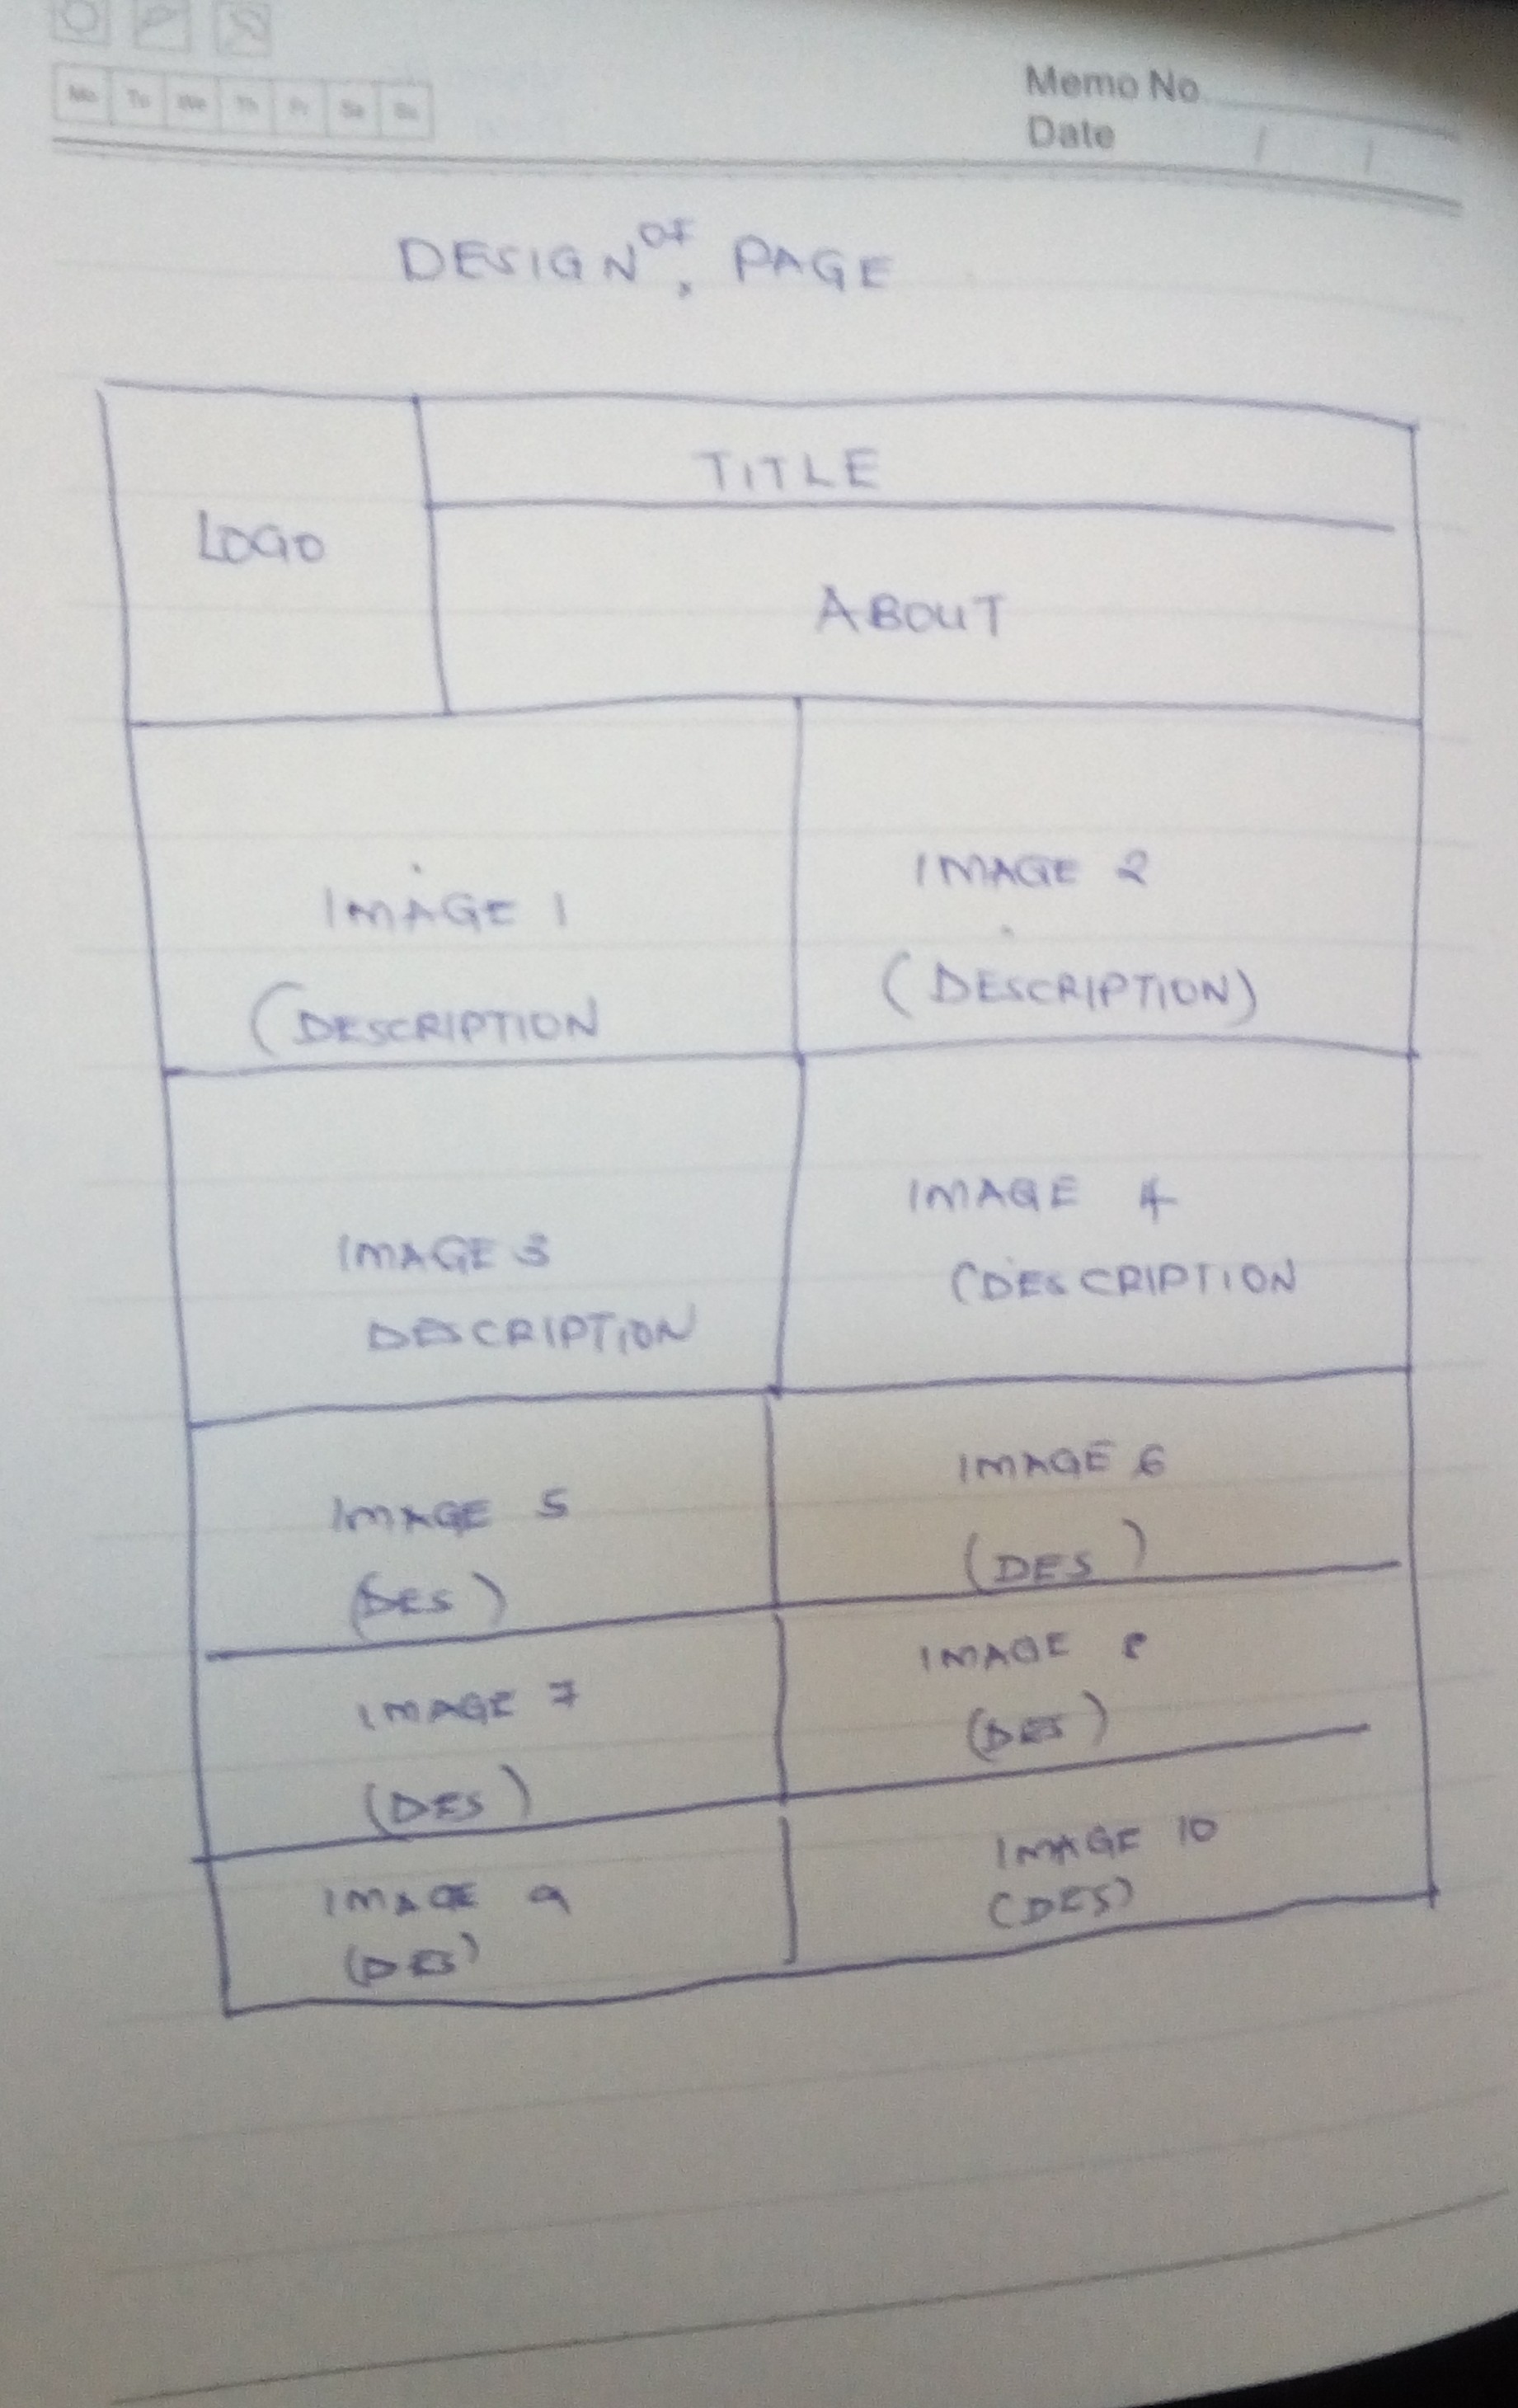 Mo Tu We Th Fr Sa Su
Memo No
Date / /
DESIGN OF PAGE
LOGO
TITLE
ABOUT
IMAGE 1
(DESCRIPTION
IMAGE 2
(DESCRIPTION)
IMAGE 3
DESCRIPTION
IMAGE 4
(DESCRIPTION
IMAGE 5
(DES)
IMAGE 6
(DES)
IMAGE 7
(DES)
IMAGE 8
(DES)
IMAGE 9
(DES)
IMAGE 10
(DES)